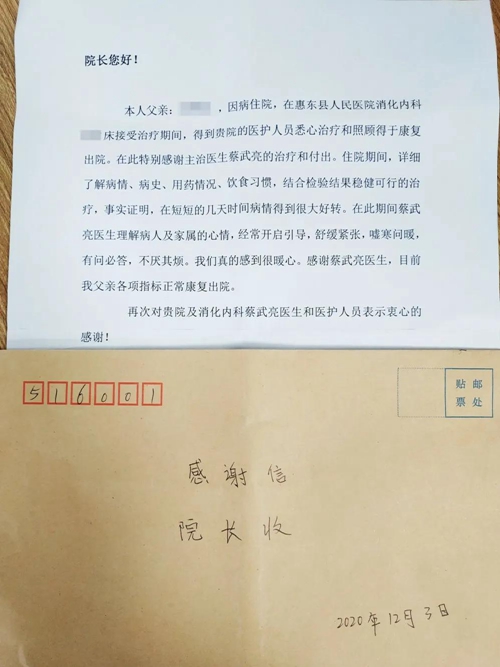 院长您好！
本人父亲： ，因病住院，在惠东县人民医院消化内科
床接受治疗期间，得到贵院的医护人员悉心治疗和照顾得于康复
出院。在此特别感谢主治医生蔡武亮的治疗和付出。住院期间，详细
了解病情、病史、用药情况、饮食习惯，结合检验结果稳健可行的治
疗，事实证明，在短短的几天时间病情得到很大好转。在此期间蔡武
亮医生理解病人及家属的心情，经常开启引导，舒缓紧张，嘘寒问暖，
有问必答，不厌其烦。我们真的感到很暖心。感谢蔡武亮医生，目前
我父亲各项指标正常康复出院。
再次对贵院及消化内科蔡武亮医生和医护人员表示衷心的
感谢！
516001
贴邮
票处
感谢信
院长收
2020年12月3日